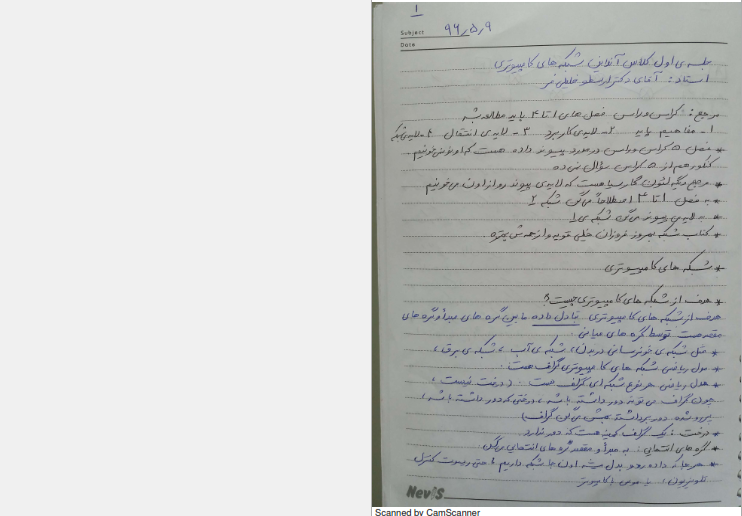 1
Subject 96,5,9
Date
جلسه ی اول کلاس آنلاین شبکه های کامپیوتری
استاد: آقای دکتر ارسطو خلیلی فر
مرجع: کراس و راس فصل های 1 تا 4 باید مطالعه شه
1- مفاهیم پایه 2- لایه ی کاربرد 3- لایه ی انتقال 4- لایه ی شبکه
* فصل 5 کراس و راس در مورد پیوند داده هست که اونو نمی خونیم
کنکور هم از 5 کراس سؤال نمی ده
* مرجع دیگه لئون گارسیا هست که لایه ی پیوند رو از اون می خونیم
* به فصل 1 تا 4 اصطلاحاً می گن شبکه 2
* به لایه ی پیوند می گن شبکه ی 1
* کتاب شبکه بهروز فروزان خیلی قویه و از همه ش بهتره.
* شبکه های کامپیوتری
* هدف از شبکه های کامپیوتری چیست؟
هدف از شبکه های کامپیوتری تبادل داده مابین گره های مبدأ و گره های
مقصد هست توسط گره های میانی.
* مثل شبکه ی خونرسانی در بدن، شبکه ی آب، شبکه ی برق،
* مدل ریاضی شبکه های کامپیوتری گراف هست.
* مدل ریاضی هر نوع شبکه ای گراف هست. (درخت نیست،
چون گراف می تونه دور داشته باشه، درختی که دور داشته باشه،
دور برداشته بهش می گن گراف)
* درخت: یک گراف هست که دور ندارد.
* گره های انتهایی: به مبدأ و مقصد گره های انتهایی می گن.
* هر جا که داده رد و بدل میشه اون جا شبکه داریم، حتی ریموت کنترل
تلویزیون،
Nevis
Scanned by CamScanner